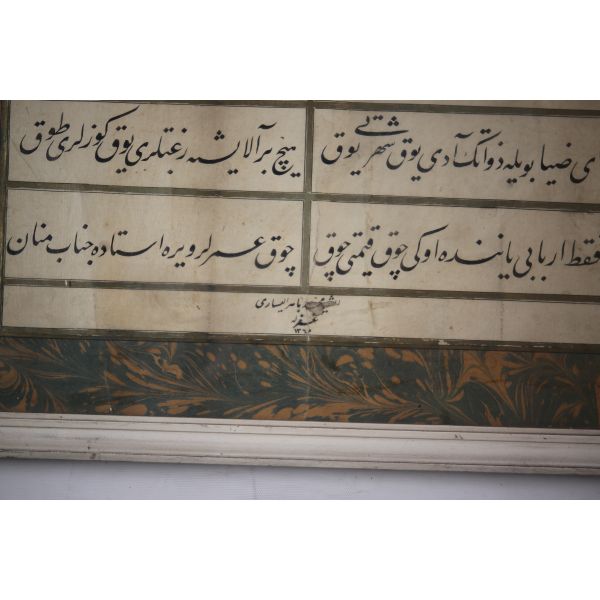 ی ضیا بویله ذواتك آدی یوق شهرتی یوق
هیچ بر آلایشه رغبتلری یوق كوزلری طوق
فقط اربابی یاننده او كی چوق قیمتی چوق
چوق عمرلر ویره استاده جناب منان